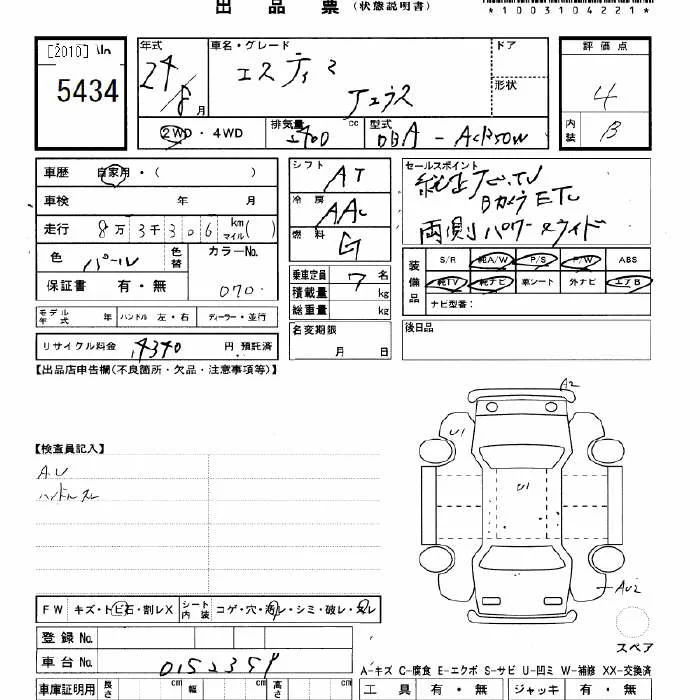 出品票 (状態説明書)
*1003104221*
[2010] 5434
年式 24 8月
車名・グレード エスティマ アエラス
ドア
形状
評価点 4
内装 B
2WD・4WD
排気量 2400 cc
型式 DBA - ACR50W
車歴 自家用・( )
車検 年 月
走行 8万3千306 km マイル( )
色 パール 色替
カラーNo. 070
保証書 有・無
モデル年式 年 ハンドル 左・右 ディーラー・並行
リサイクル料金 14340 円 預託済
シフト AT
冷房 AAC
燃料 G
乗車定員 7 名
積載量 kg
総重量 kg
名変期限 月 日
セールスポイント
純正ナビ,TV
Bカメラ ETC
両側パワースライド
装備品 S/R 純A/W P/S P/W ABS
純TV 純ナビ 革シート 外ナビ エアB
ナビ型番:
後日品
【出品店申告欄(不良箇所・欠品・注意事項等)】
【検査員記入】
AU
ハンドルスレ
A2
U1
U1
AU2
スペア
FW キズ・トビ石・割レX シート内装 コゲ・穴・汚レ・シミ・破レ・スレ
登録No.
車台No. 0152359
車庫証明用 長さ cm 幅 cm 高さ cm
A-キズ C-腐食 E-エクボ S-サビ U-凹ミ W-補修 XX-交換済
工具 有・無 ジャッキ 有・無